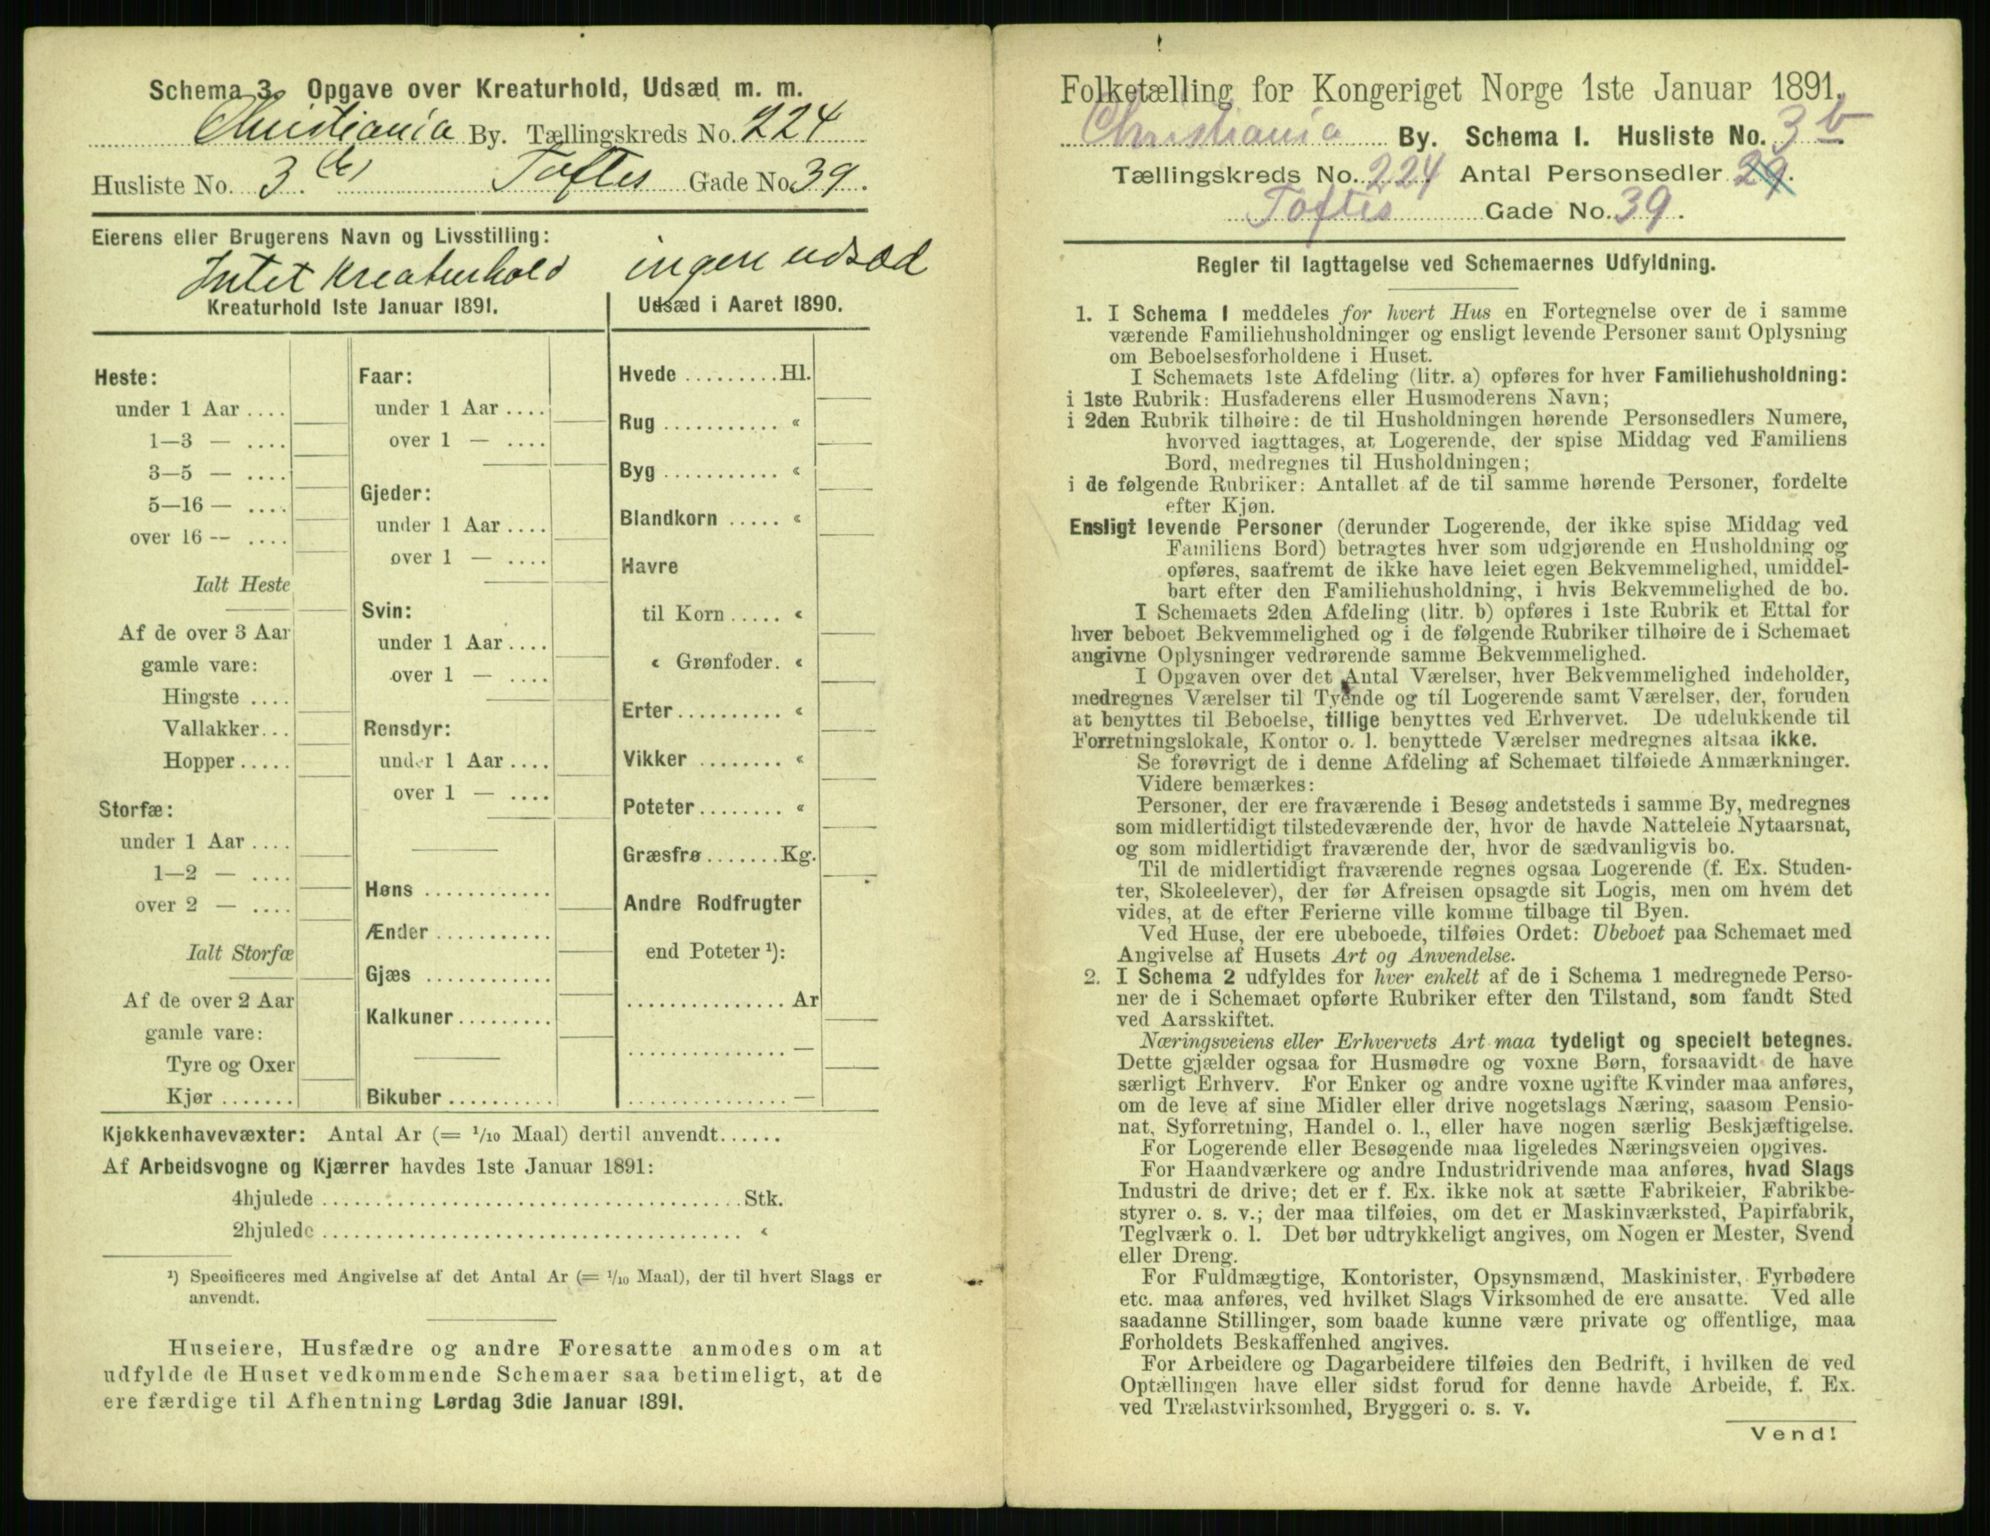 Schema 3. Opgave over Kreaturhold, Udsæd m. m.
Christiania By. Tællingskreds No. 224
Husliste No. 3 Toftes Gade No. 39.
Eierens eller Brugerens Navn og Livsstilling:
Intet Kreaturhold ingen udsæd
Kreaturhold 1ste Januar 1891.
Heste:
under 1 Aar ....
1—3 — ....
3—5 — ....
5—16 — ....
over 16 — ....
Ialt Heste
Af de over 3 Aar
gamle vare:
Hingste ....
Vallakker...
Hopper .....
Storfæ:
under 1 Aar ....
1—2 — ....
over 2 — ....
Ialt Storfæ
Af de over 2 Aar
gamle vare:
Tyre og Oxer
Kjør .......
Faar:
under 1 Aar ....
over 1 — ....
Gjeder:
under 1 Aar ....
over 1 — ....
Svin:
under 1 Aar ....
over 1 — ....
Rensdyr:
under 1 Aar ....
over 1 — ....
Høns ............
Ænder ...........
Gjæs ............
Kalkuner.........
Bikuber ..........
Udsæd i Aaret 1890.
Hvede .........Hl.
Rug ........... «
Byg ........... «
Blandkorn ..... «
Havre
til Korn ..... «
« Grønfoder. «
Erter.......... «
Vikker ........ «
Poteter........ «
Græsfrø .......Kg.
Andre Rodfrugter
end Poteter ¹):
............... Ar
............... —
............... —
Kjøkkenhavevæxter: Antal Ar (= ¹/₁₀ Maal) dertil anvendt......
Af Arbeidsvogne og Kjærrer havdes 1ste Januar 1891:
4hjulede ........................................ Stk.
2hjulede ........................................ «
¹) Specificeres med Angivelse af det Antal Ar (= ¹/₁₀ Maal), der til hvert Slags er
anvendt.
Huseiere, Husfædre og andre Foresatte anmodes om at
udfylde de Huset vedkommende Schemaer saa betimeligt, at de
ere færdige til Afhentning Lørdag 3die Januar 1891.
Folketælling for Kongeriget Norge 1ste Januar 1891.
Christiania By. Schema I. Husliste No. 3 b
Tællingskreds No. 224 Antal Personsedler 29.
Toftes Gade No. 39.
Regler til Iagttagelse ved Schemaernes Udfyldning.
1. I Schema I meddeles for hvert Hus en Fortegnelse over de i samme
værende Familiehusholdninger og ensligt levende Personer samt Oplysning
om Beboelsesforholdene i Huset.
I Schemaets 1ste Afdeling (litr. a) opføres for hver Familiehusholdning:
i 1ste Rubrik: Husfaderens eller Husmoderens Navn;
i 2den Rubrik tilhøire: de til Husholdningen hørende Personsedlers Numere,
hvorved iagttages, at Logerende, der spise Middag ved Familiens
Bord, medregnes til Husholdningen;
i de følgende Rubriker: Antallet af de til samme hørende Personer, fordelte
efter Kjøn.
Ensligt levende Personer (derunder Logerende, der ikke spise Middag ved
Familiens Bord) betragtes hver som udgjørende en Husholdning og
opføres, saafremt de ikke have leiet egen Bekvemmelighed, umiddel-
bart efter den Familiehusholdning, i hvis Bekvemmelighed de bo.
I Schemaets 2den Afdeling (litr. b) opføres i 1ste Rubrik et Ettal for
hver beboet Bekvemmelighed og i de følgende Rubriker tilhøire de i Schemaet
angivne Oplysninger vedrørende samme Bekvemmelighed.
I Opgaven over det Antal Værelser, hver Bekvemmelighed indeholder,
medregnes Værelser til Tyende og til Logerende samt Værelser, der, foruden
at benyttes til Beboelse, tillige benyttes ved Erhvervet. De udelukkende til
Forretningslokale, Kontor o. l. benyttede Værelser medregnes altsaa ikke.
Se forøvrigt de i denne Afdeling af Schemaet tilføiede Anmærkninger.
Videre bemærkes:
Personer, der ere fraværende i Besøg andetsteds i samme By, medregnes
som midlertidigt tilstedeværende der, hvor de havde Natteleie Nytaarsnat,
og som midlertidigt fraværende der, hvor de sædvanligvis bo.
Til de midlertidigt fraværende regnes ogsaa Logerende (f. Ex. Studen-
ter, Skoleelever), der før Afreisen opsagde sit Logis, men om hvem det
vides, at de efter Ferierne ville komme tilbage til Byen.
Ved Huse, der ere ubeboede, tilføies Ordet: Ubeboet paa Schemaet med
Angivelse af Husets Art og Anvendelse.
2. I Schema 2 udfyldes for hver enkelt af de i Schema 1 medregnede Perso-
ner de i Schemaet opførte Rubriker efter den Tilstand, som fandt Sted
ved Aarsskiftet.
Næringsveiens eller Erhvervets Art maa tydeligt og specielt betegnes.
Dette gjælder ogsaa for Husmødre og voxne Børn, forsaavidt de have
særligt Erhverv. For Enker og andre voxne ugifte Kvinder maa anføres,
om de leve af sine Midler eller drive nogetslags Næring, saasom Pensio-
nat, Syforretning, Handel o. l., eller have nogen særlig Beskjæftigelse.
For Logerende eller Besøgende maa ligeledes Næringsveien opgives.
For Haandværkere og andre Industridrivende maa anføres, hvad Slags
Industri de drive; det er f. Ex. ikke nok at sætte Fabrikeier, Fabrikbe-
styrer o. s. v.; der maa tilføies, om det er Maskinværksted, Papirfabrik,
Teglværk o. l. Det bør udtrykkeligt angives, om Nogen er Mester, Svend
eller Dreng.
For Fuldmægtige, Kontorister, Opsynsmænd, Maskinister, Fyrbødere
etc. maa anføres, ved hvilket Slags Virksomhed de ere ansatte. Ved alle
saadanne Stillinger, som baade kunne være private og offentlige, maa
Forholdets Beskaffenhed angives.
For Arbeidere og Dagarbeidere tilføies den Bedrift, i hvilken de ved
Optællingen have eller sidst forud for denne havde Arbeide, f. Ex.
ved Trælastvirksomhed, Bryggeri o. s. v.
Vend!